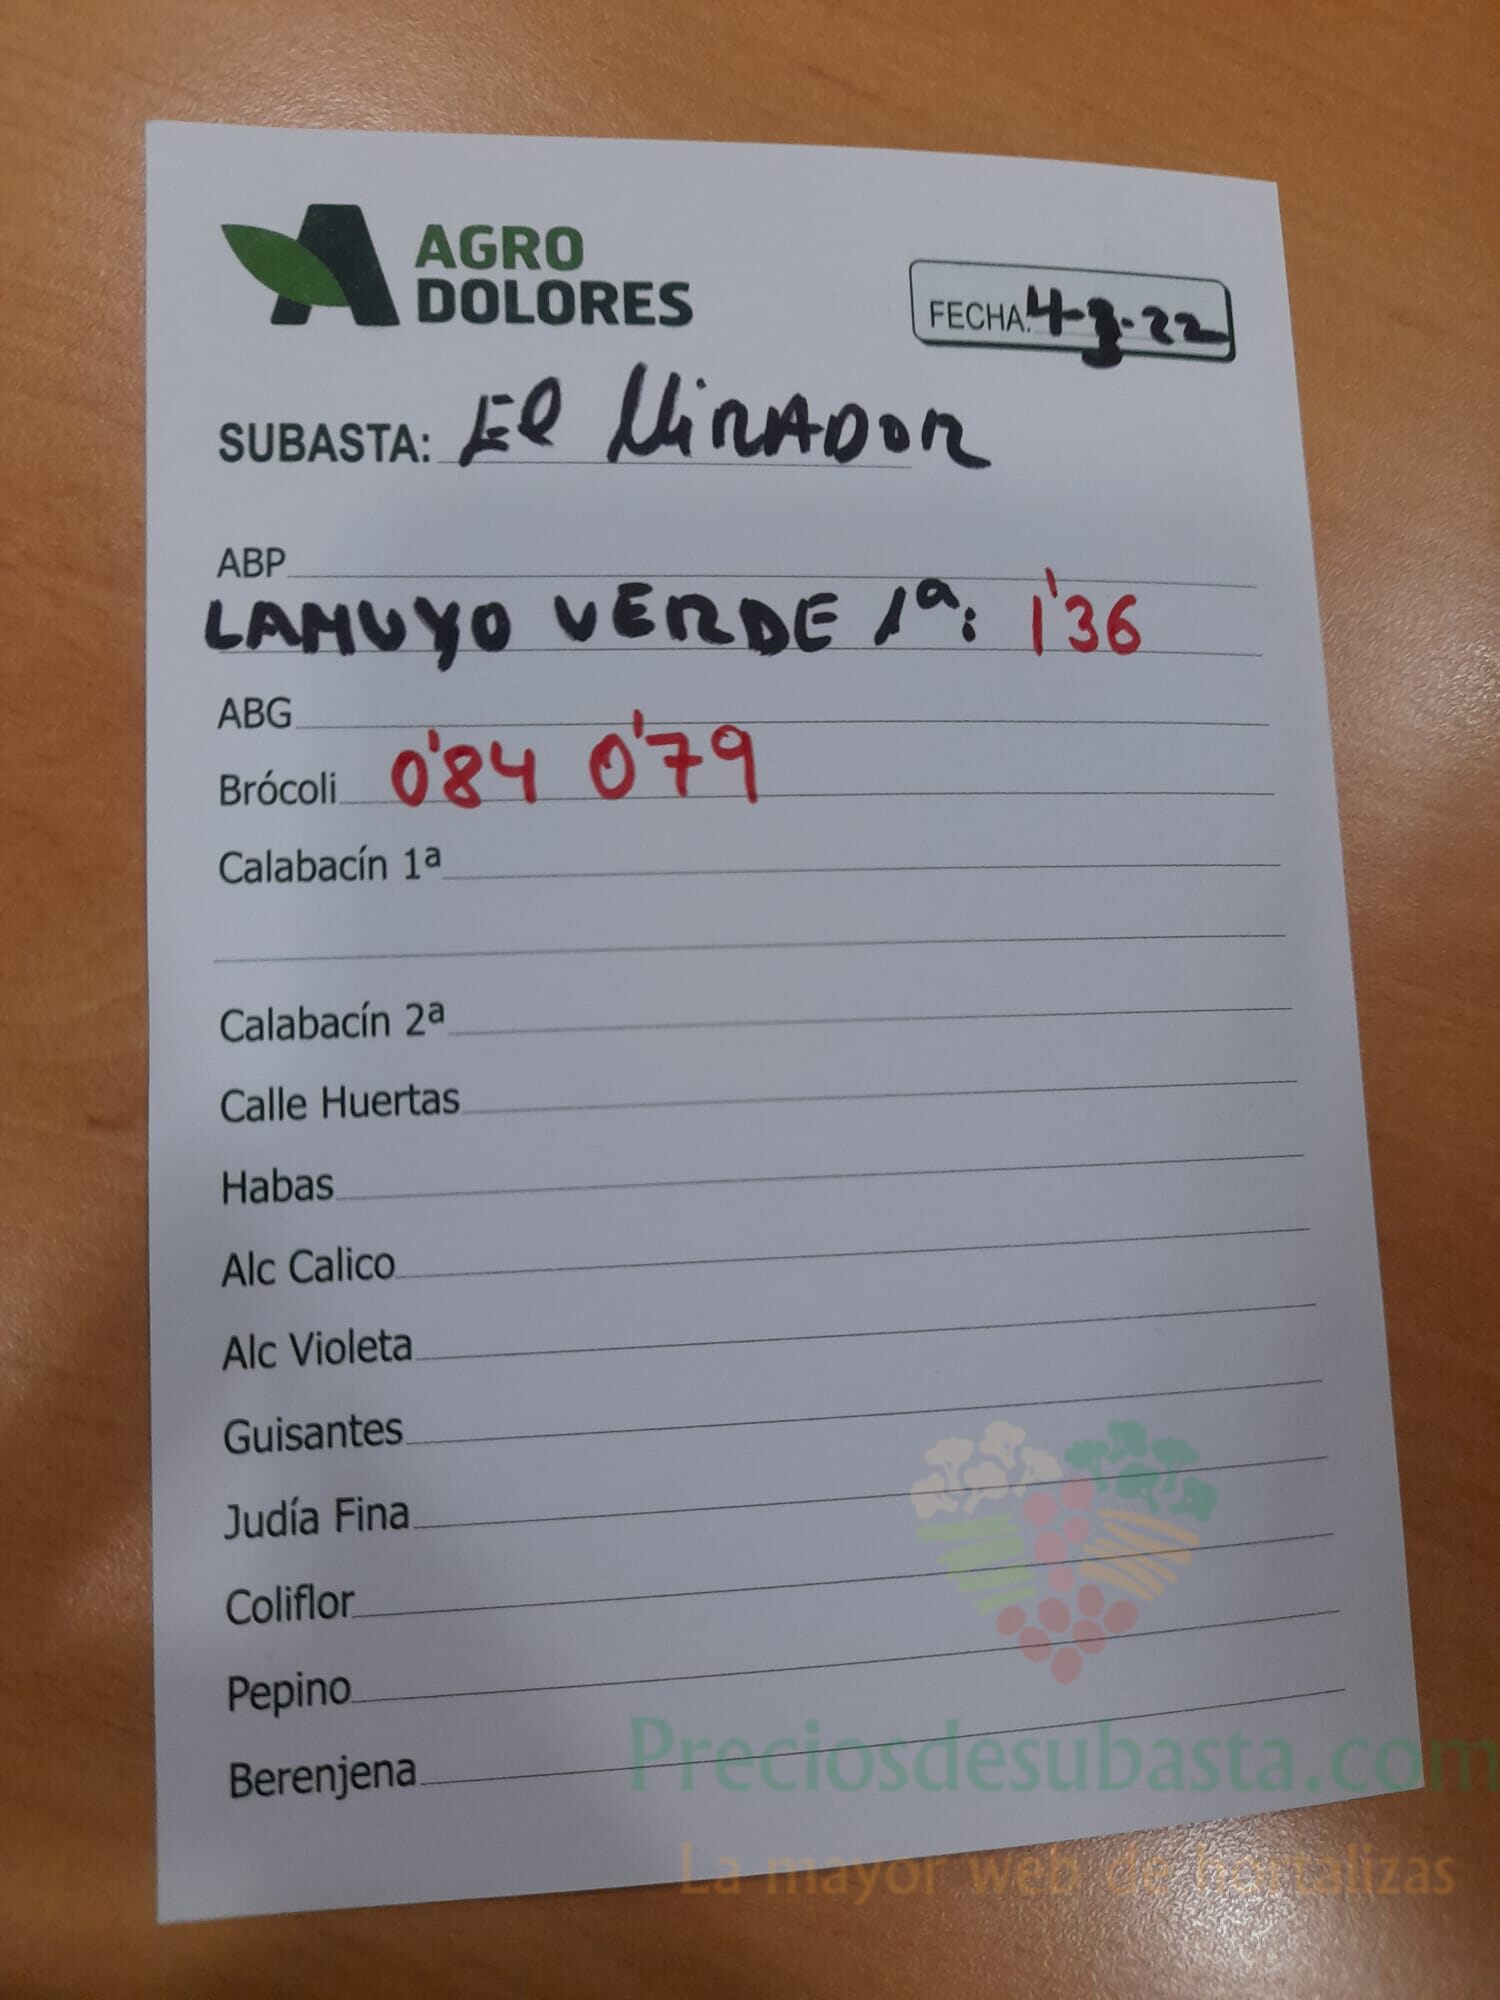 AGRO
DOLORES
FECHA: 4-3-22
SUBASTA: El MiRADOR
ABP
LAMUYO VERDE 1ª: 1'36
ABG
Brócoli 0'84 0'79
Calabacín 1ª
Calabacín 2ª
Calle Huertas
Habas
Alc Calico
Alc Violeta
Guisantes
Judía Fina
Coliflor
Pepino
Berenjena
Preciosdesubasta.com
La mayor web de hortalizas